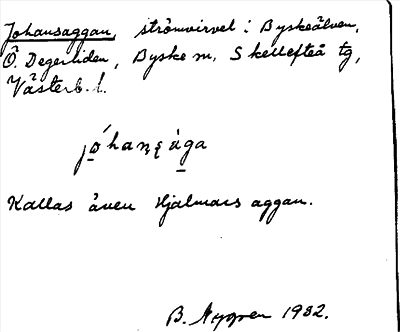 Johansaggan, strömvirvel i Byskeälven,
Ö. Degerliden, Byske sn, Skellefteå tg,
Västerb. l.
jóhanęága
Kallas även Hjalmars aggan.
B. Nygren 1932.